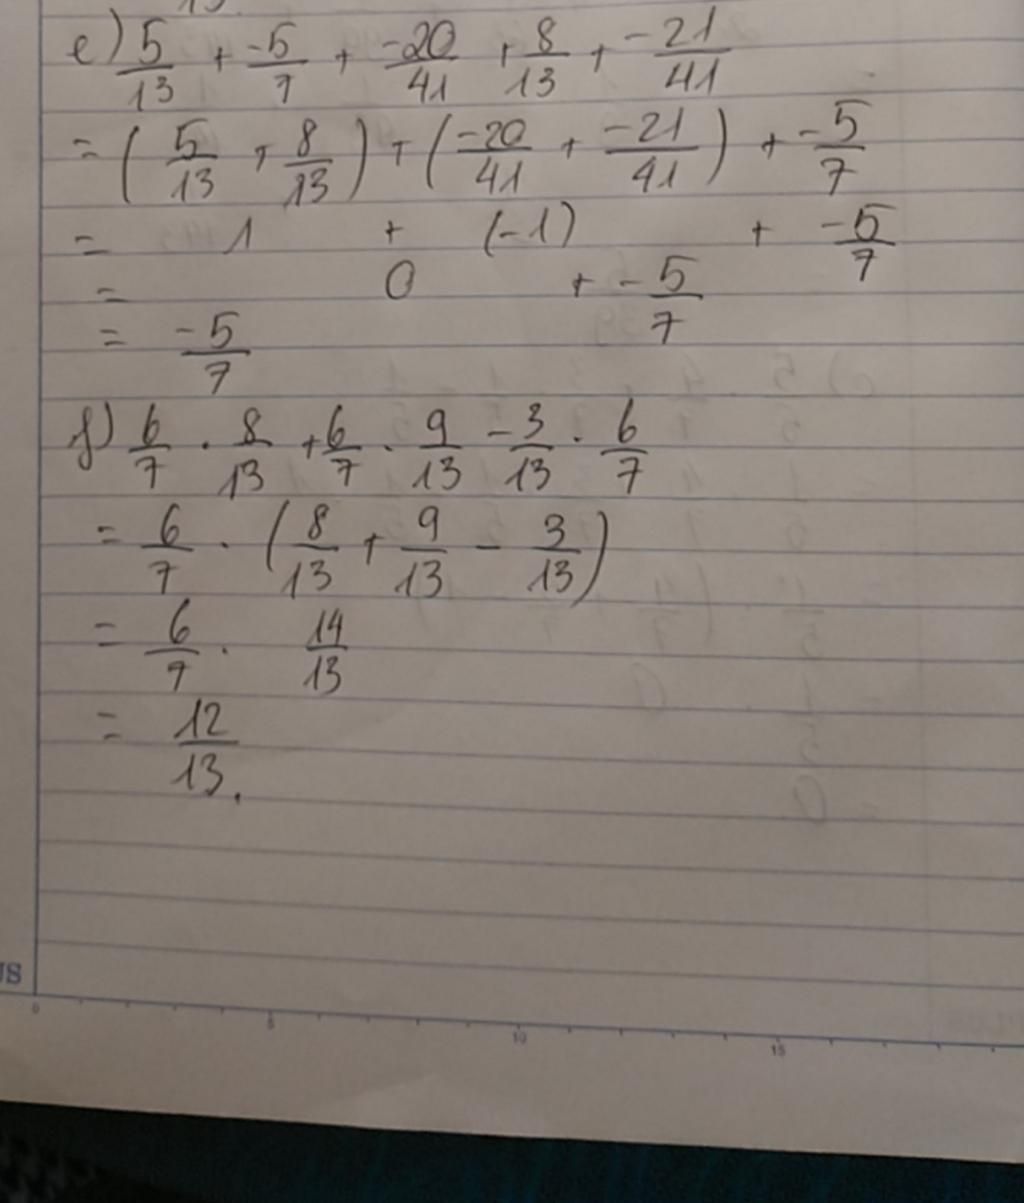 e) 5/13 + -5/7 + -20/41 + 8/13 + -21/41
= (5/13 + 8/13) + (-20/41 + -21/41) + -5/7
= 1 + (-1) + -5/7
= 0 + -5/7
= -5/7
f) 6/7 . 8/13 + 6/7 . 9/13 - 3/13 . 6/7
= 6/7 . (8/13 + 9/13 - 3/13)
= 6/7 . 14/13
= 12/13.
US
0 5 10 15